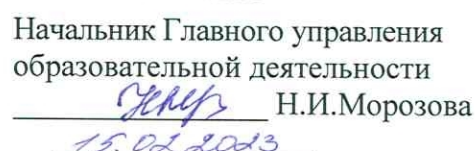 Начальник Главного управления
образовательной деятельности
Н.И.Морозова
15.02.2023